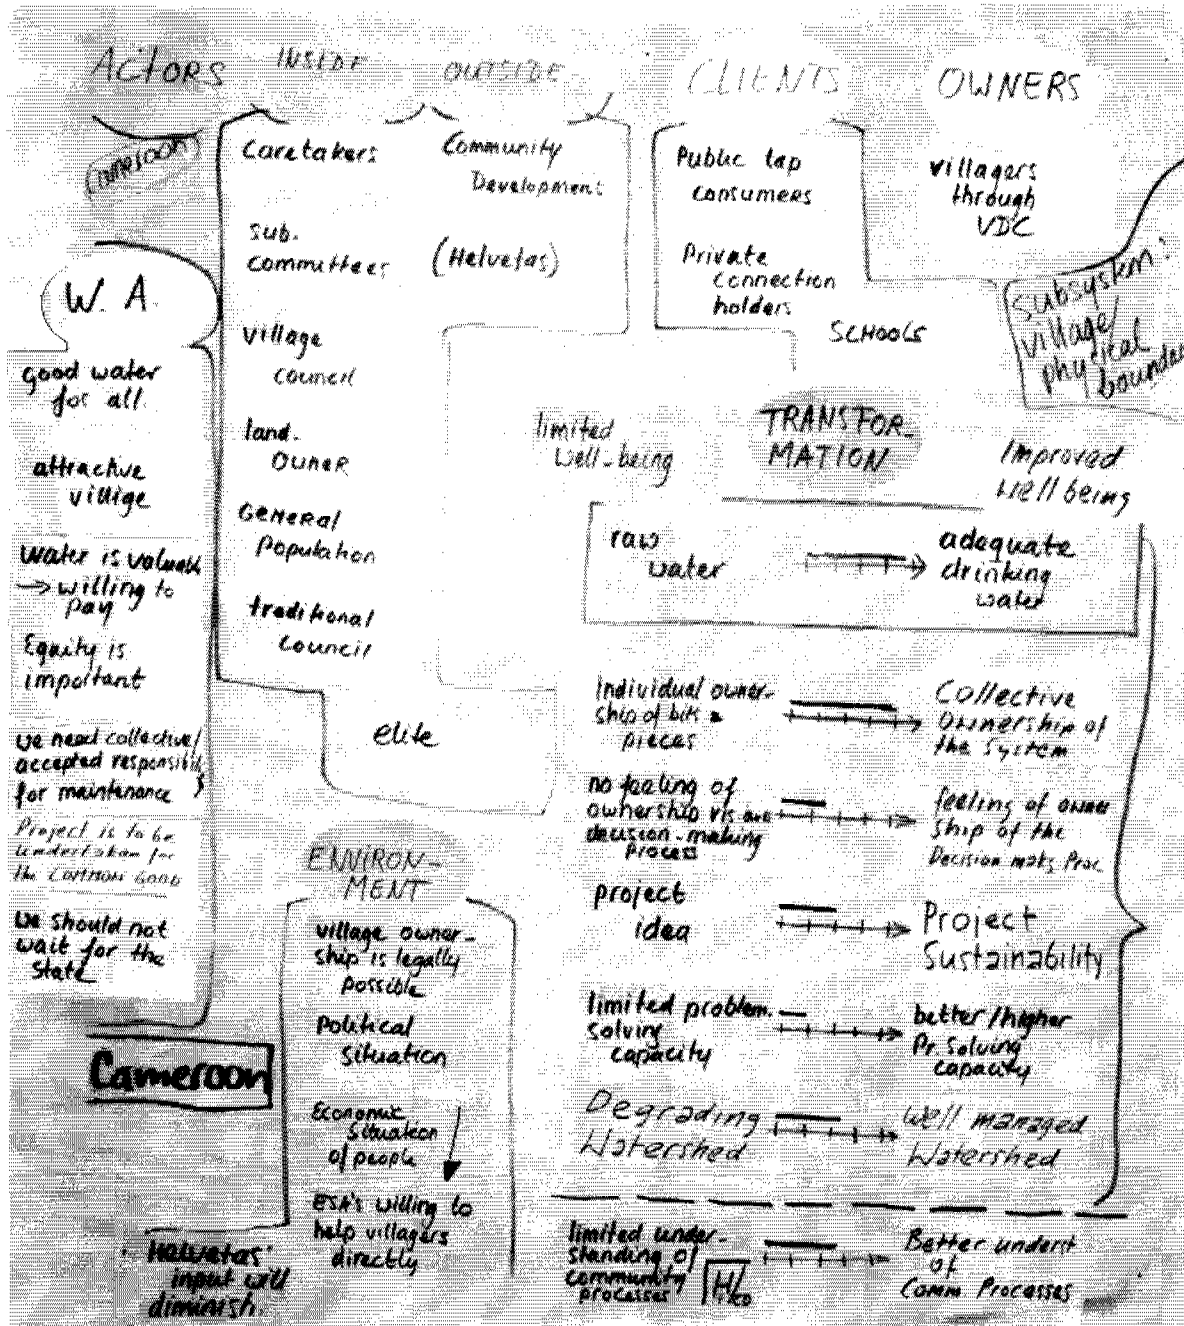 ACTORS
INSIDE
OUTSIDE
CLIENTS
OWNERS
Cameroon
Caretakers
sub.
committees
village
council
land.
OWNER
GENERAL
Population
traditional
council
elite
Community
Development
(Helvetas)
Public tap
consumers
Private
connection
holders
SCHOOLS
villagers
through
VDC
Subsystem:
village/
physical
W. A.
good water
for all
attractive
village
water is valuable
→ willing to
pay
Equity is
important
we need collective/
accepted
for maintenance
Project is to be
undertaken for
the COMMON GOOD
we should not
wait for the
state
Cameroon
Helvetas'
input will
diminish.
ENVIRON-
MENT
village owner-
ship is legally
possible
Political
situation
Economic
situation
of people
ESA's willing to
help villagers
directly
TRANSFOR-
MATION
limited
well-being
Improved
well being
raw
water
adequate
drinking
water
individual owner-
ship of bits
pieces
Collective
ownership of
the System
no feeling of
ownership
decision-making
process
feeling of owner
ship of the
Decision
project
idea
Project
Sustainability
limited problem.
solving
capacity
better/higher
Pr. Solving
capacity
Degrading
Watershed
Well managed
Watershed
limited under-
standing of
community
processes
H/CD
Better underst
of
Comm Processes